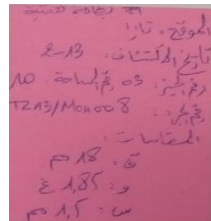 الموقع: تازا
تاريخ الاكتشاف: 2013
رقم الحيز: 03 رقم المساحة: 10
TZ13/Mon008
المقاسات:
ق: 18 مم
و: 1,85 غ
س: 1,5 مم